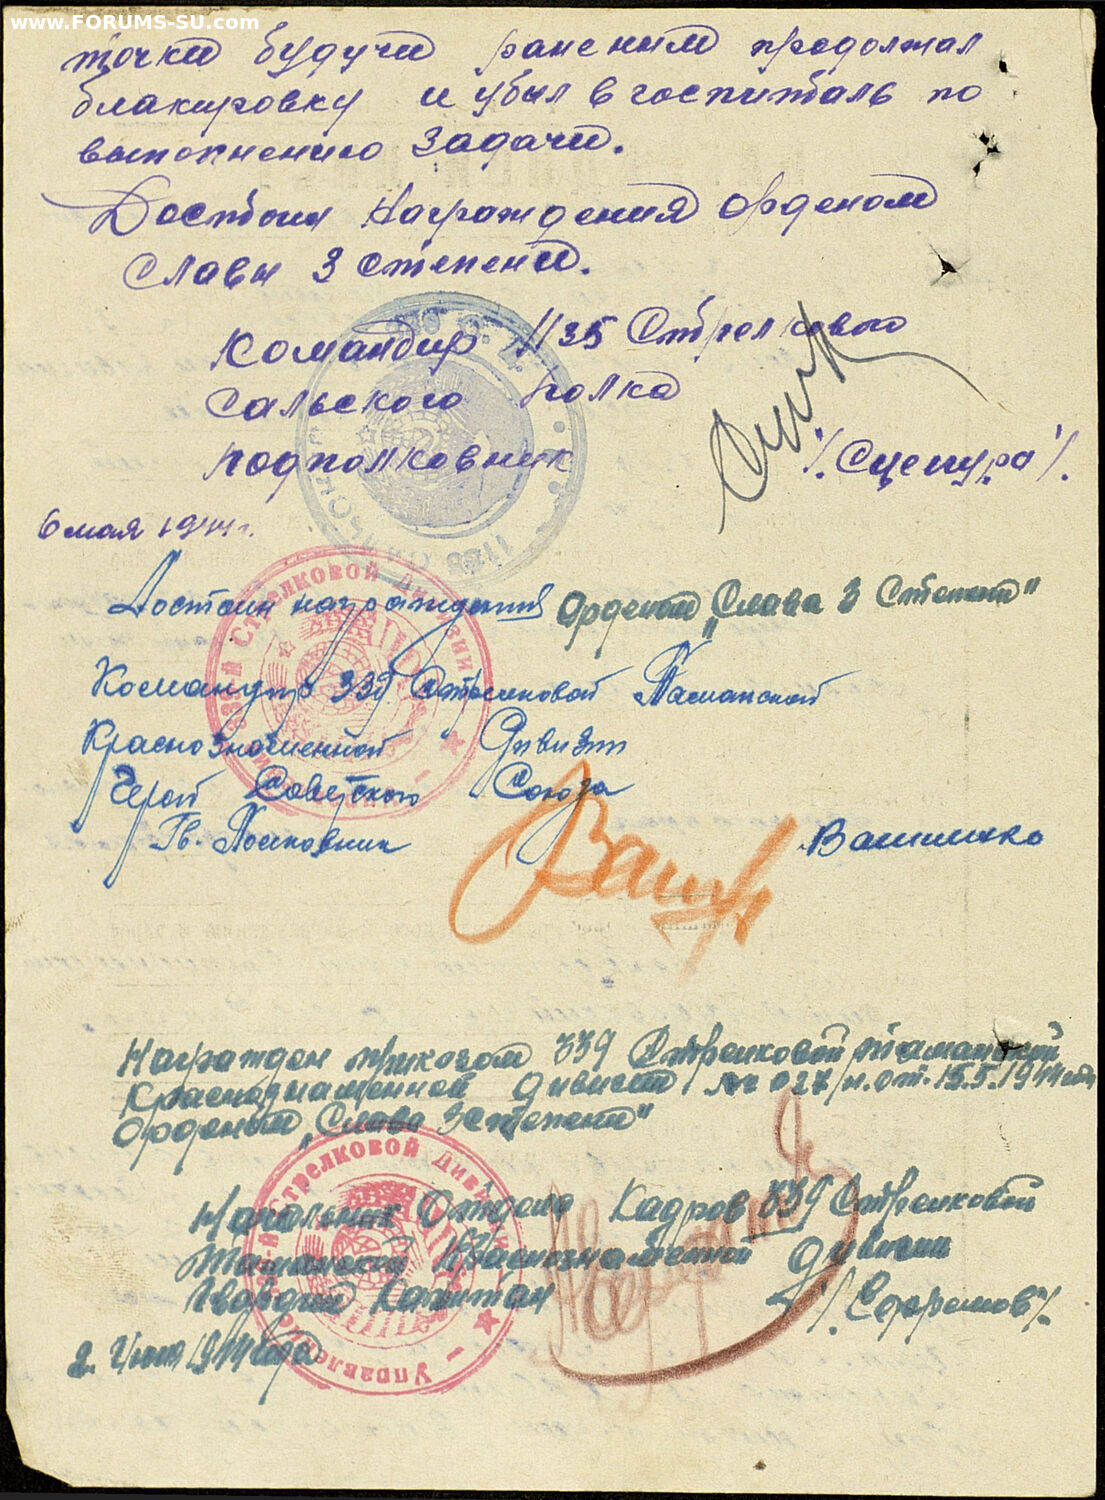 www.FORUMS-SU.com
точки будучи раненим продолжал
блакировку и убыл в госпиталь по
выполнению задачи.
Достоин награждения орденом
Славы 3 степени.
Командир 1135 Стрелкового
Сальского полка
подполковник /Сцепура/.
6 мая 1944 г.
Достоин награждения Орденом „Слава 3 Степени"
Командир 339 Стрелковой Таманской
Краснознаменной Дивизии
Герой Советского Союза
Гв. Полковник
Награжден приказом 339 Стрелковой Таманской
Краснознаменной дивизии № 027/н. от. 15.5.1944 года
Орденом „Слава 3 степени"
Начальник Отдела Кадров 339 Стрелковой
Таманской Краснознаменной дивизии
Гвардии Капитан /Ефремов/.
2. Июня 1944 года
Стрелковой Дивизии
Стрелковой Дивизии
Управление